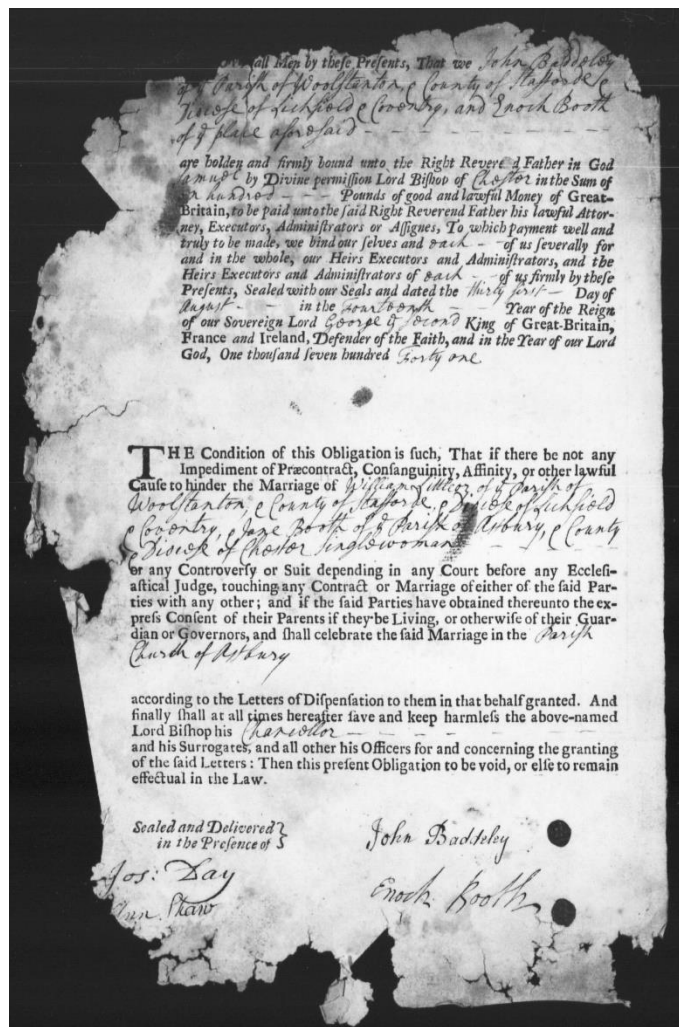 all Men by these Presents, That we John Baddeley
of ye Parish of Woolstanton, & County of Stafforde &
Diocese of Lichfield & Coventry, and Enoch Booth
of ye place aforesaid - - - - - - - -
are holden and firmly bound unto the Right Revere d Father in God
amuel by Divine permission Lord Bishop of Chester in the Sum of
hundred - - - Pounds of good and lawful Money of Great-
Britain, to be paid unto the said Right Reverend Father his lawful Attor-
ney, Executors, Administrators or Assignes, To which payment well and
truly to be made, we bind our selves and each - - of us severally for
and in the whole, our Heirs Executors and Administrators, and the
Heirs Executors and Administrators of each - - of us firmly by these
Presents, Sealed with our Seals and dated the thirty first - Day of
August - - in the fourteenth - - Year of the Reign
of our Sovereign Lord George ye Second King of Great-Britain,
France and Ireland, Defender of the Faith, and in the Year of our Lord
God, One thousand seven hundred Forty one
THE Condition of this Obligation is such, That if there be not any
Impediment of Præcontract, Consanguinity, Affinity, or other lawful
Cause to hinder the Marriage of William of ye Parish of
Woolstanton, & County of Stafforde, & Diocese of Lichfield
& Coventry, & Jane Booth of ye Parish of Astbury, & County
& Diocese of Chester singlewoman - - - -
or any Controversy or Suit depending in any Court before any Ecclesi-
astical Judge, touching any Contract or Marriage of either of the said Par-
ties with any other; and if the said Parties have obtained thereunto the ex-
press Consent of their Parents if they be Living, or otherwise of their Guar-
dian or Governors, and shall celebrate the said Marriage in the Parish
Church of Astbury
according to the Letters of Dispensation to them in that behalf granted. And
finally shall at all times hereafter save and keep harmless the above-named
Lord Bishop his Chancellor - - - - - - - -
and his Surrogates, and all other his Officers for and concerning the granting
of the said Letters: Then this present Obligation to be void, or else to remain
effectual in the Law.
Sealed and Delivered
in the Presence of
John Baddeley
Jos: Day
Enoch Booth
Ann Shaw